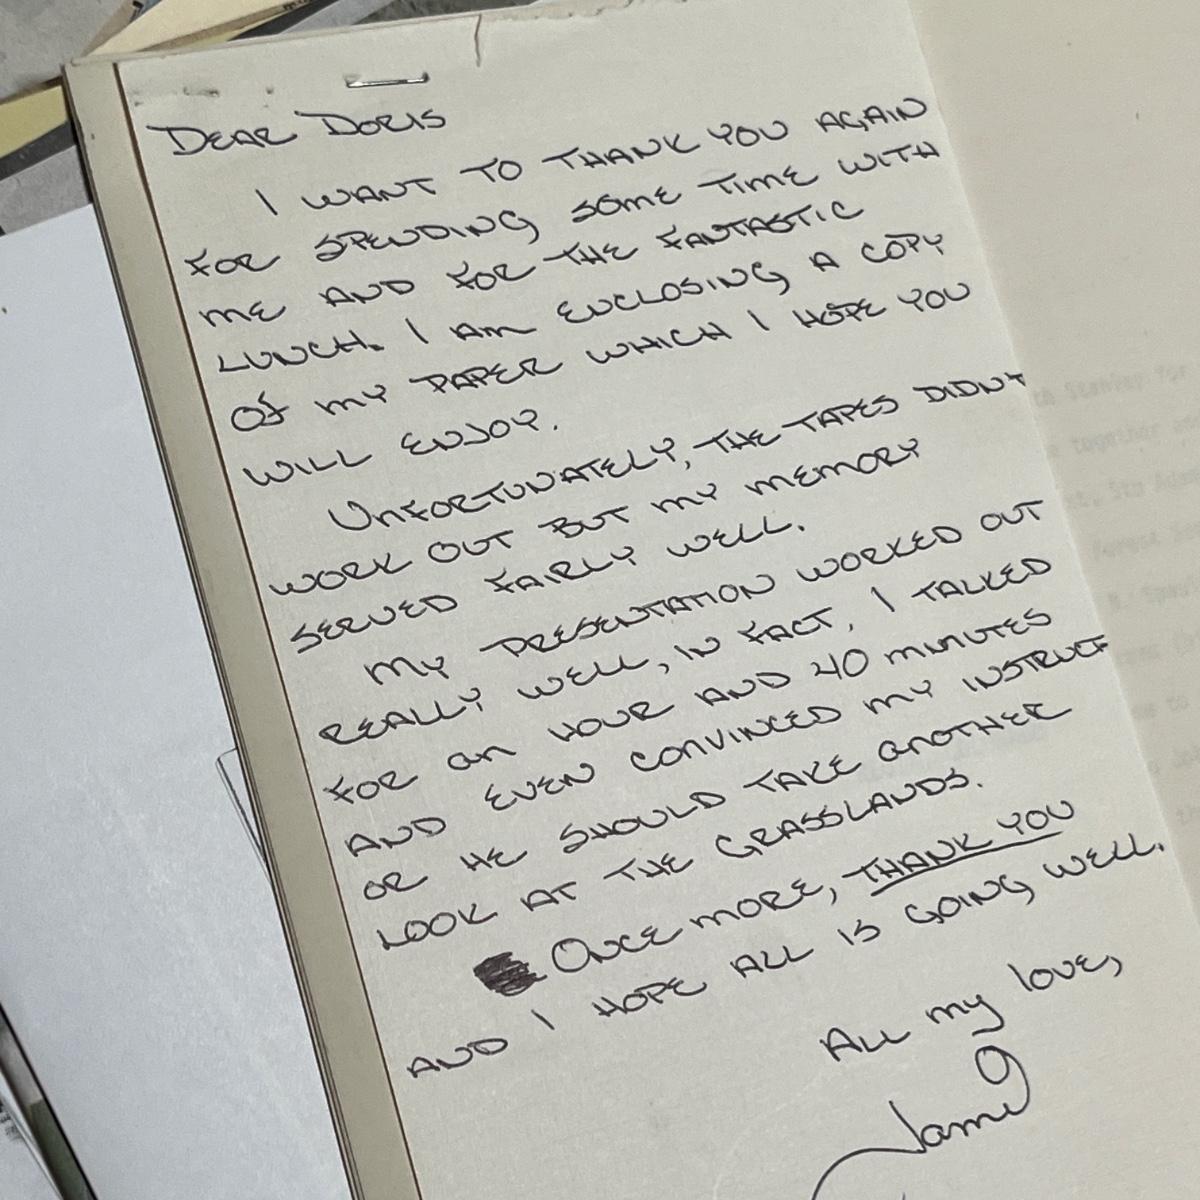 DEAR DORIS
I WANT TO THANK YOU AGAIN
FOR SPENDING SOME TIME WITH
ME AND FOR THE FANTASTIC
LUNCH. I AM ENCLOSING A COPY
OF MY PAPER WHICH I HOPE YOU
WILL ENJOY.
UNFORTUNATELY, THE TAPES DIDN'T
WORK OUT BUT MY MEMORY
SERVED FAIRLY WELL.
MY PRESENTATION WORKED OUT
REALLY WELL, IN FACT, I TALKED
FOR an HOUR AND 40 MINUTES
AND EVEN CONVINCED MY INSTRUCT
OR HE SHOULD TAKE anOTHER
LOOK AT THE GRASSLANDS.
ONCE MORE, THANK YOU
AND I HOPE ALL IS GOING WELL.
All my love,
th Stanley for
together